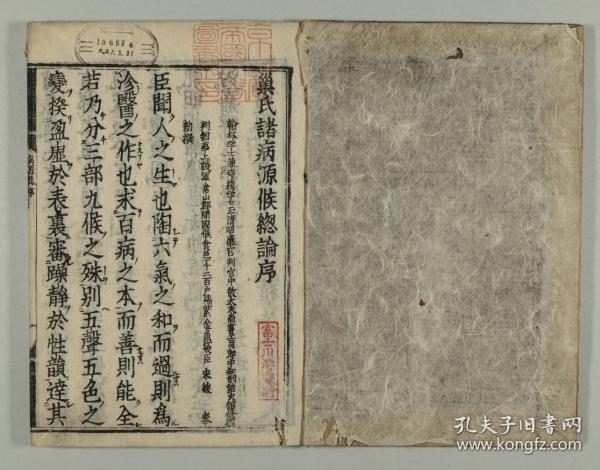 巢氏諸病源候總論序
翰林學士兼侍讀學士玉清昭應宮判官中散大夫尚書左司郎中知制誥史館修撰
判館事上護軍常山郡開國侯食邑一千二百戶賜紫金魚袋臣 宋綬 奉
勅撰
臣聞人之生也陶六氣之和而過則為
沴醫之作也求百病之本而善則能全
若乃分三部九候之殊別五聲五色之
變揆盈虛於表裏審躁靜於性韻達其
富士川游
孔夫子旧书网
www.kongfz.com